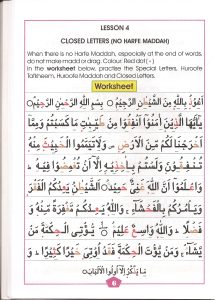 LESSON 4
CLOSED LETTERS (NO HARFE MADDAH)
When there is no Harfe Maddah, especially at the end of words, do not make madd or drag. Colour: Red dot ( • )
In the worksheet below, practise the Special Letters, Huroofe Tafkheem, Huroofe Maddah and Closed Letters.
Worksheet
اَعُوْذُ بِاللّٰهِ مِنَ الشَّيْطٰنِ الرَّجِيْمِ ○ بِسْمِ اللّٰهِ الرَّحْمٰنِ الرَّحِيْمِ ○
يٰٓاَيُّهَا الَّذِيْنَ اٰمَنُوْٓا اَنْفِقُوْا مِنْ طَيِّبٰتِ مَا كَسَبْتُمْ وَمِمَّآ
اَخْرَجْنَا لَكُمْ مِّنَ الْاَرْضِ ۪ وَلَا تَيَمَّمُوا الْخَبِيْثَ مِنْهُ
تُنْفِقُوْنَ وَلَسْتُمْ بِاٰخِذِيْهِ اِلَّآ اَنْ تُغْمِضُوْا فِيْهِ ؕ
وَاعْلَمُوْٓا اَنَّ اللّٰهَ غَنِيٌّ حَمِيْدٌ ○ اَلشَّيْطٰنُ يَعِدُكُمُ الْفَقْرَ
وَيَاْمُرُكُمْ بِالْفَحْشَآءِ ۚ وَاللّٰهُ يَعِدُكُمْ مَّغْفِرَةً مِّنْهُ وَ
فَضْلًا ؕ وَاللّٰهُ وَاسِعٌ عَلِيْمٌ ○ يُّؤْتِي الْحِكْمَةَ مَنْ
يَّشَآءُ ۚ وَمَنْ يُّؤْتَ الْحِكْمَةَ فَقَدْ اُوْتِيَ خَيْرًا كَثِيْرًا ؕ وَ
مَا يَذَّكَّرُ اِلَّآ اُولُوا الْاَلْبَابِ ○
6